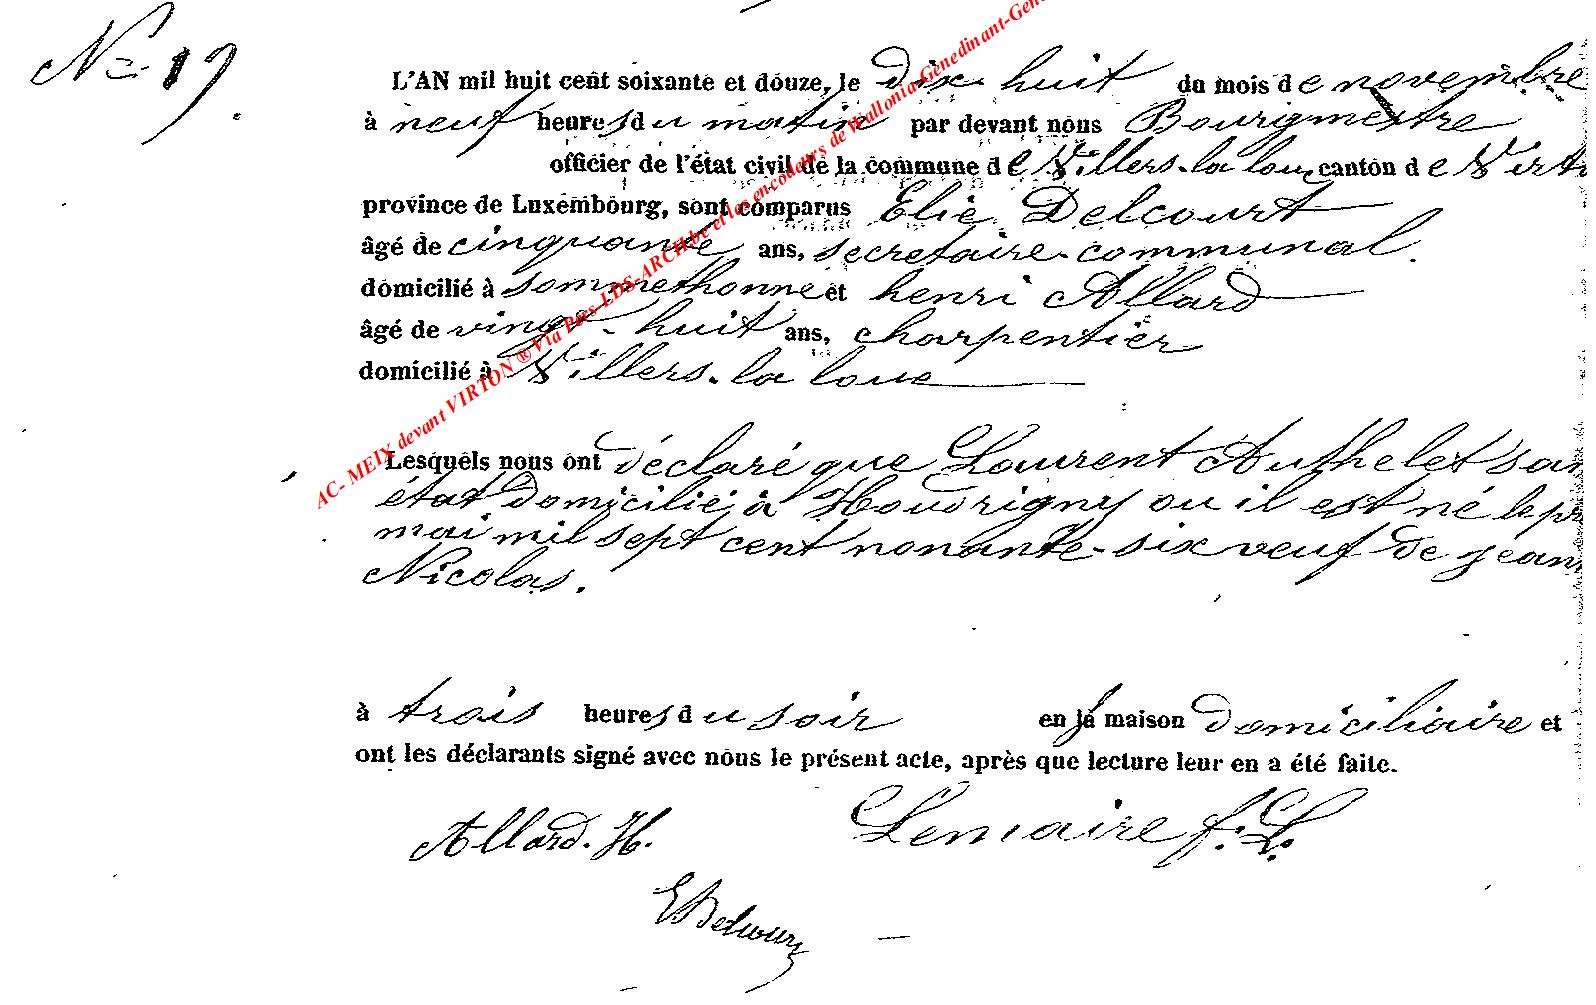 N° 19.
L'AN mil huit cent soixante et douze, le dix-huit du mois de novembre
à neuf heures du matin par devant nous Bourgmestre
officier de l'état civil de la commune de Villers-la loue canton de Virt
province de Luxembourg, sont comparus Elie Delcourt
âgé de cinquante ans, secretaire-communal.
domicilié à Sommethonne et henri Allard
âgé de vingt-huit ans, charpentier
domicilié à Villers-la loue
Lesquels nous ont déclaré que Laurent Authelet san
état domicilié à Houdrigny ou il est né le pr
mai mil sept cent nonante-six veuf de jean
Nicolas.
à trois heures du soir en sa maison domiciliaire et
ont les déclarants signé avec nous le présent acte, après que lecture leur en a été faite.
Allard. H. Lemaire f. L.
E Delcourt
AC- MEIX devant VIRTON ® Via Pars-LDS-ARCH.be et les encodeurs de Wallonia-Genedinant-Gene